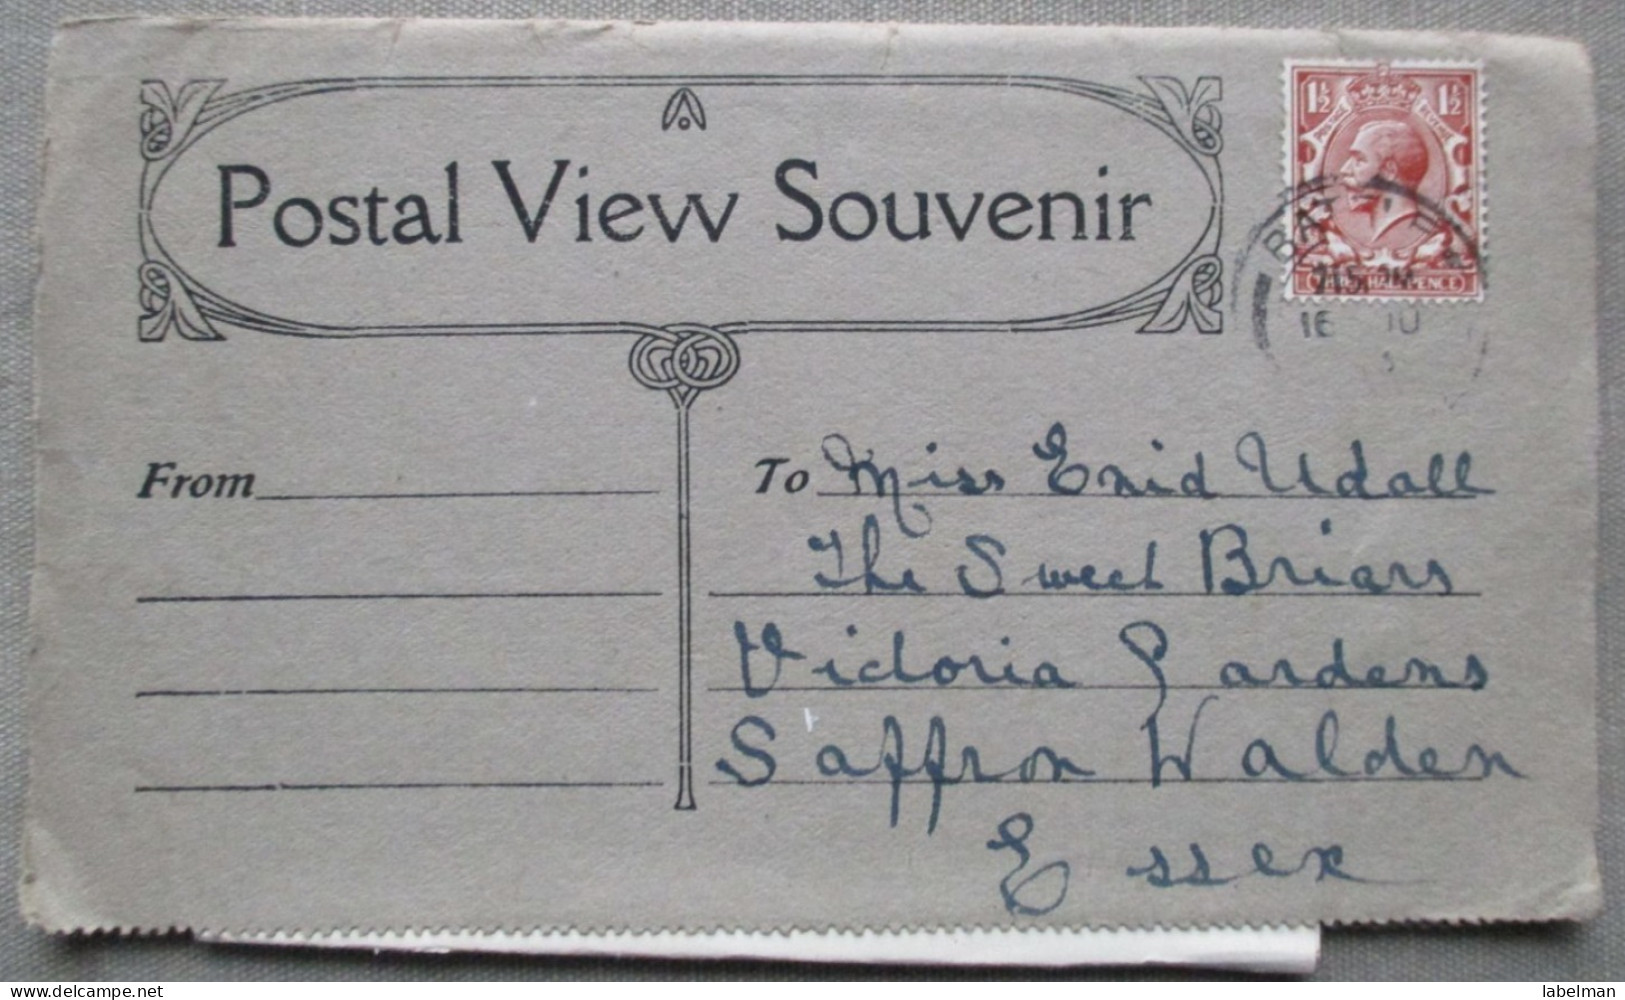 Postal View Souvenir
1½ 1½
POSTAGE REVENUE
THREE HALF PENCE
7 15 PM
16 10
From
To Miss Enid Udall
The Sweet Briars
Victoria Gardens
Saffron Walden
Essex
www.delcampe.net
labelman